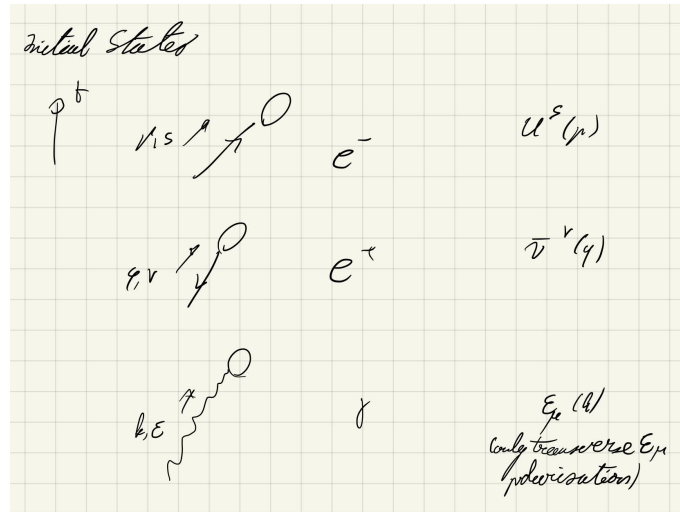 Initial States
t
p,s e⁻ uˢ(p)
q,r e⁺ v̄ʳ(q)
k,ε γ εμ(k)
(only transverse εμ
polarisation)